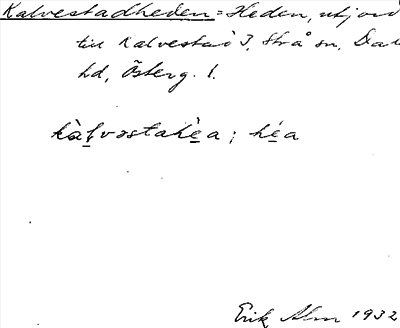 Kalvestadheden = Heden, utjord
till Kalvestad 3, Strå sn, Dals
hd, Österg. l.
kàl̬vəstahè̱a ; hé̱a
Erik Alm 1932